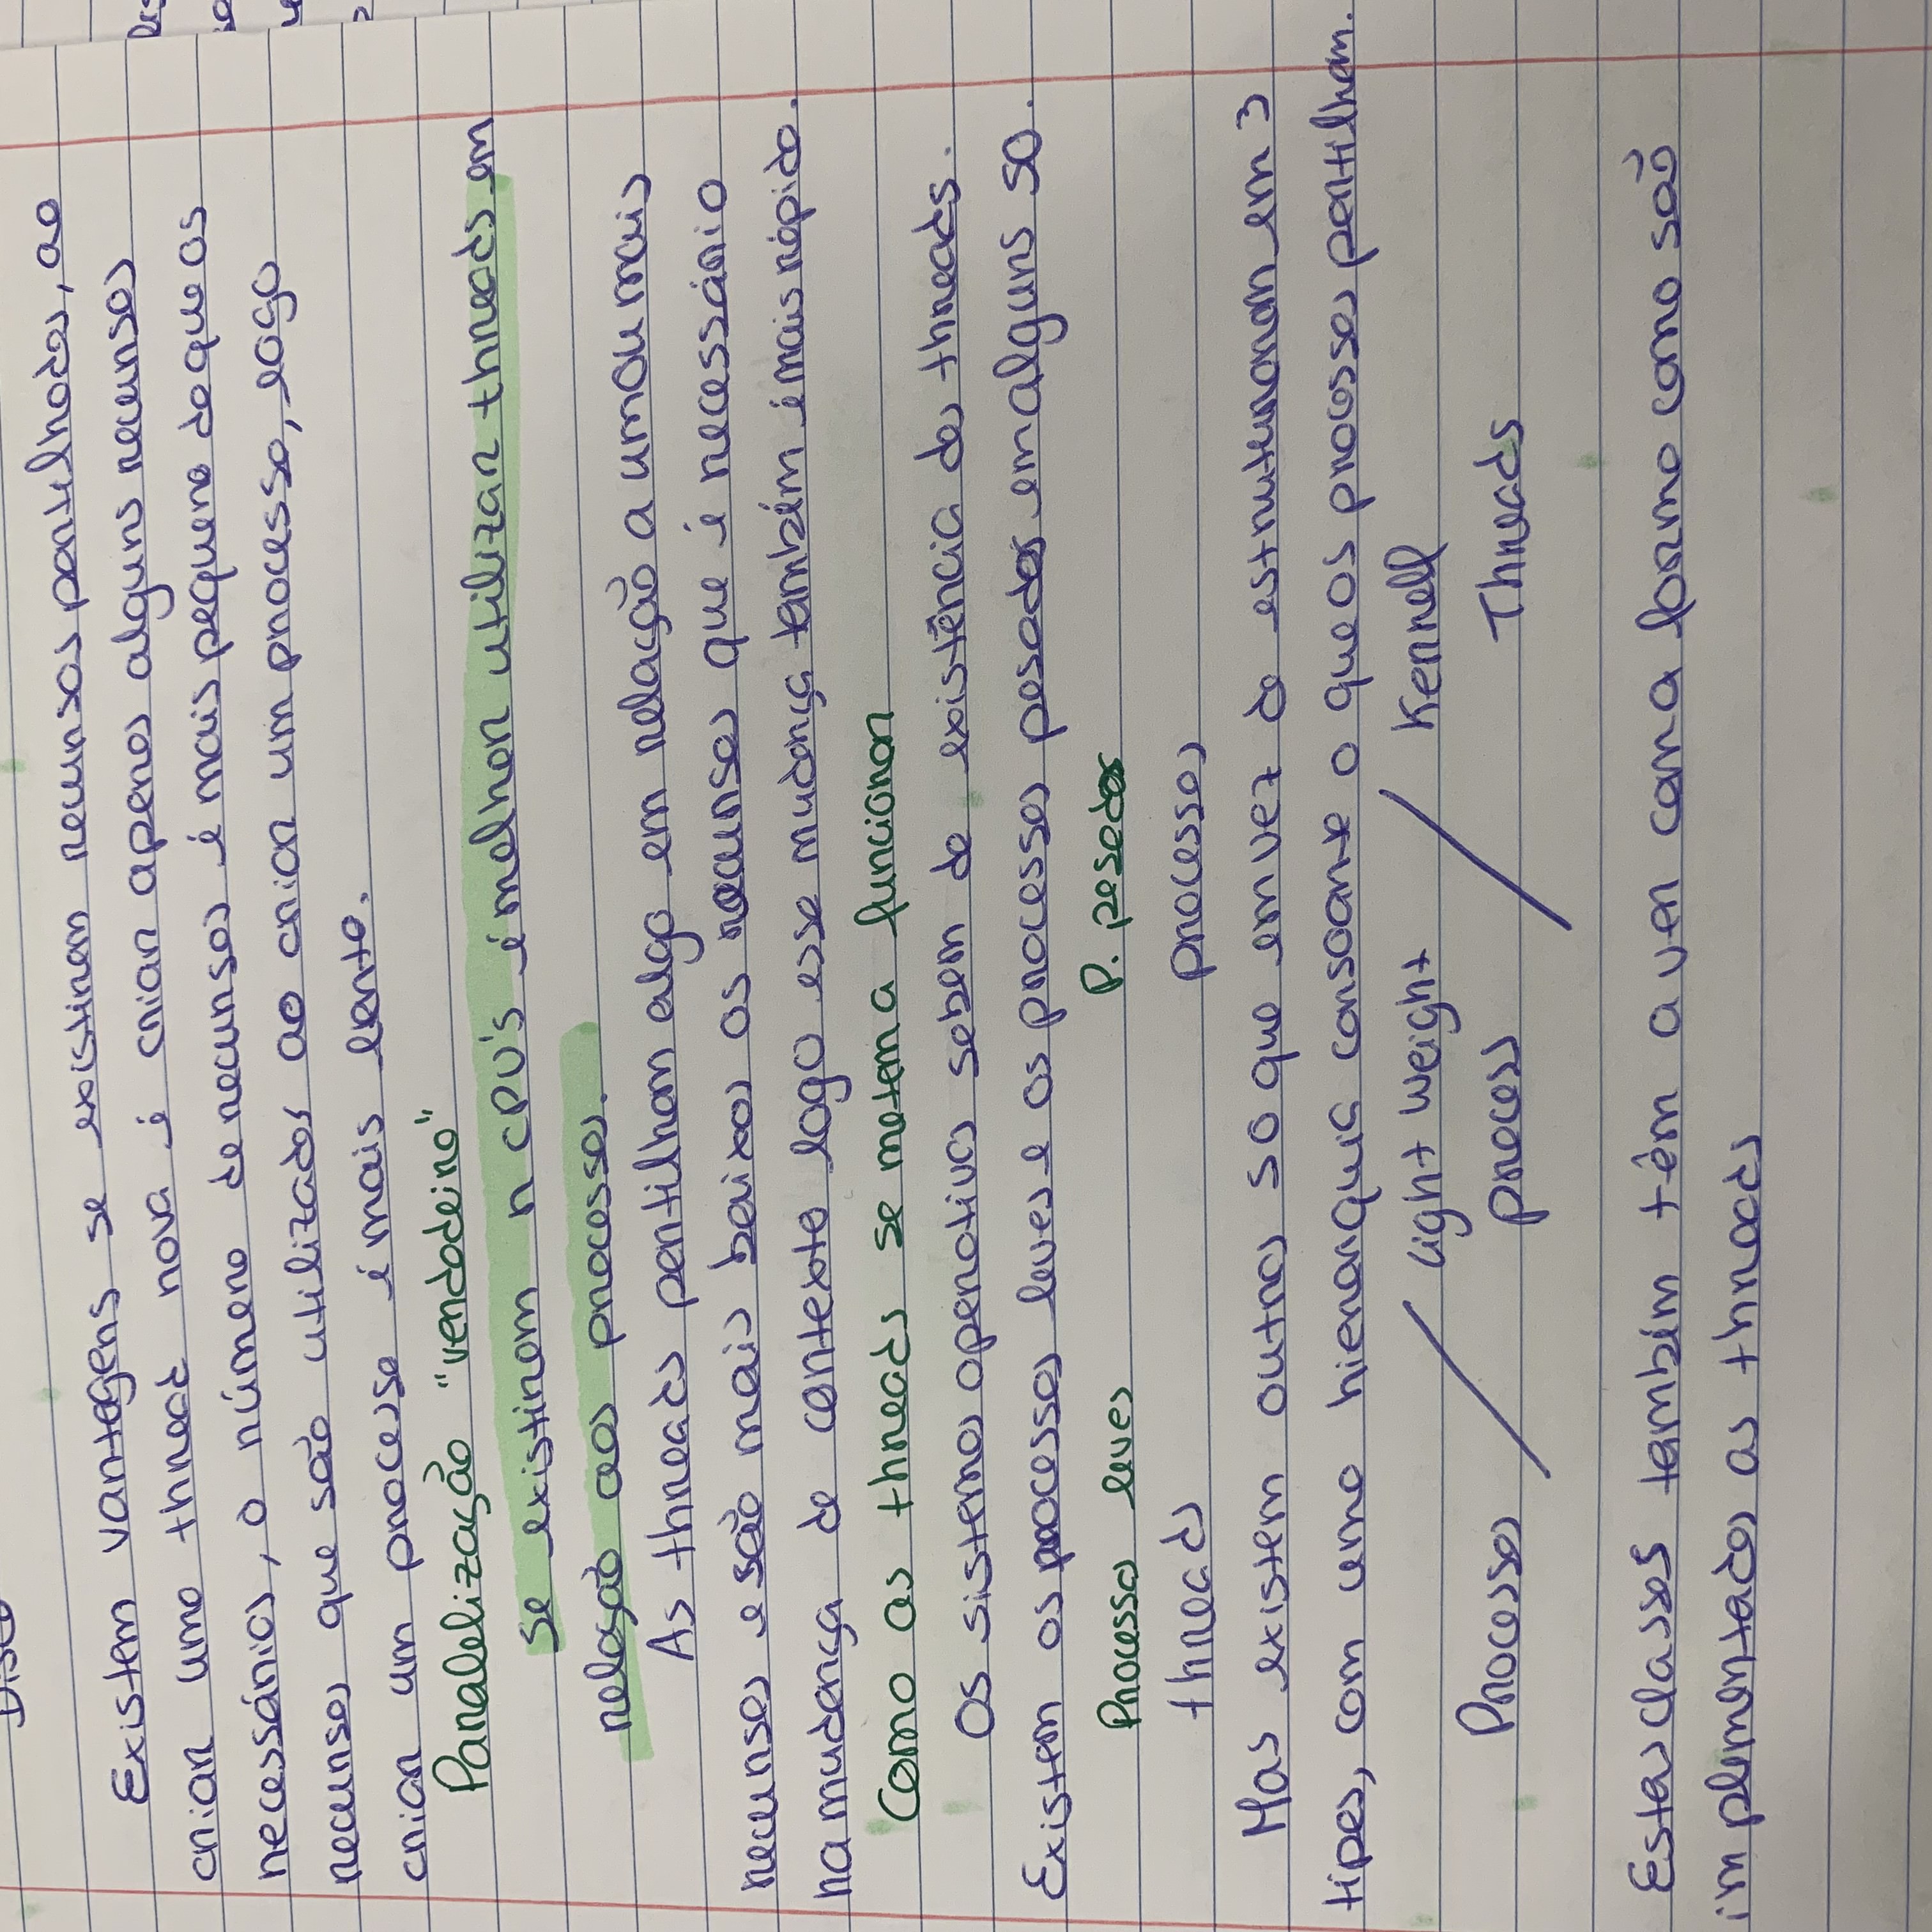 Existem vantagens se existirem recursos partilhados, ao
criar uma thread nova é criar apenas alguns recursos
necessários, o número de recursos é mais pequeno do que os
recursos que são utilizados ao criar um processo, logo
criar um processo é mais lento.
Paralelização "verdadeira"
Se existirem n CPU's é melhor utilizar threads em
relação aos processos.
As threads partilham algo em relação a um ou mais
recursos e são mais baixos os recursos que é necessário
na mudança de contexto logo essa mudança também é mais rápida.
Como as threads se metem a funcionar
Os sistemas operativos sabem da existência das threads.
Existem os processos leves e os processos pesados em alguns SO.
Processos leves P. pesados
threads processos
Mas existem outros SO que em vez de estruturaram em 3
tipos, com uma hierarquia consoante o que os processos partilham.
Light Weight Kernell
Processos / process / Threads
Estas classes também têm a ver com a forma como são
implementadas as threads